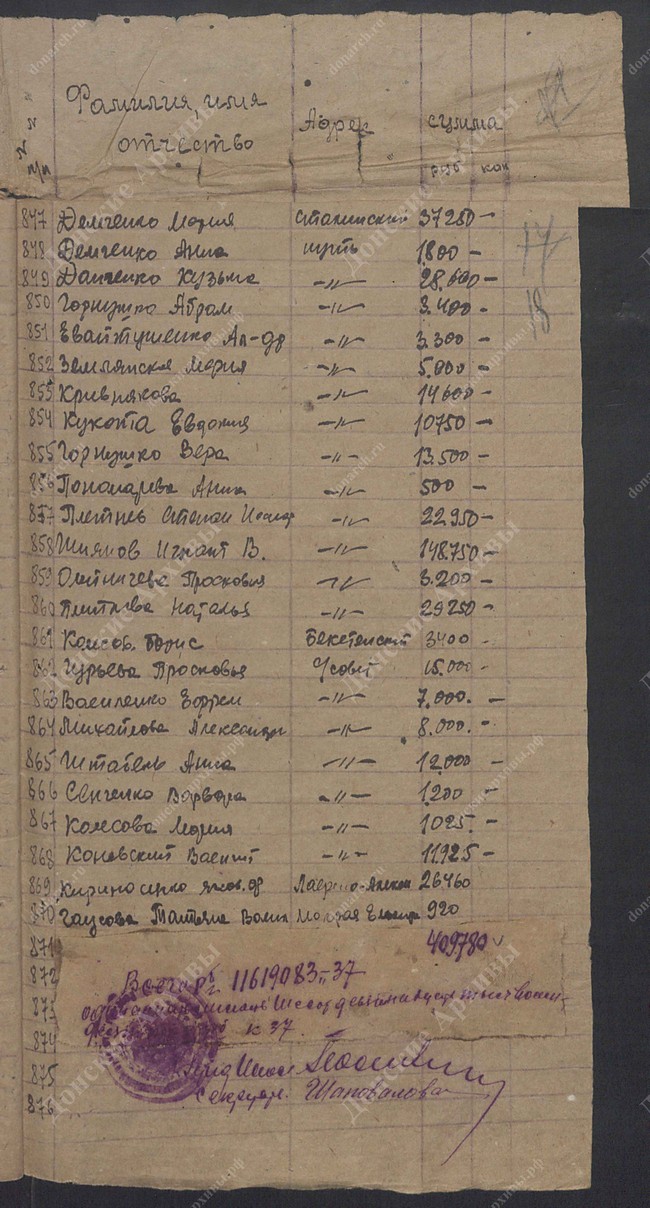 №№ п/п Фамилия, имя отчество Адрес сумма
руб коп
847 Демченко Мария Сталинский 37250 -
848 Демченко Анна путь 1.800 -
849 Данченко Кузьма -"- 28.600 -
850 Горнушко Абрам -"- 3.400 -
851 Евайтушенко Ал-др -"- 3.300 -
852 Землянская Мария -"- 5.000 -
853 Кривнякова -"- 14600 -
854 Кукота Евдокия -"- 10750 -
855 Горнушко Вера -"- 13.500 -
856 Пономарева Анна -"- 500 -
857 Плетнев Степан -"- 22.950 -
858 Шиянов Игнат В. -"- 148.750 -
859 Олейничева Просковья -"- 3.200 -
860 Наталья -"- 29250 -
861 Борис 3400 -
862 Гурьева Просковья 15.000 -
863 Василенко Ефрем -"- 7.000. -
864 Михайлова Александр -"- 8.000. -
865 Штабель Анна -"- 12.000 -
866 Сенченко Варвара -"- 1.200 -
867 Колесова Мария -"- 1025. -
868 Коновский -"- 11.925 -
869 26460
870 Гаусова Татьяна Мокрая 920
871 409780
872 Всего 11619083-37
873
874 к 37.
875
876 Секретарь Шаповалова
17
18
Донские Архивы
donarch.ru